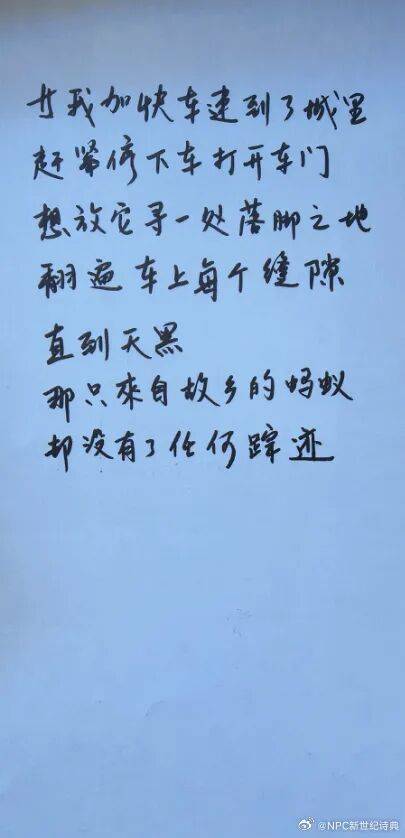 我加快车速到了城里
赶紧停下车打开车门
想放它寻一处落脚之地
翻遍车上每个缝隙
直到天黑
那只来自故乡的蚂蚁
却没有了任何踪迹
@NPC新世纪诗典